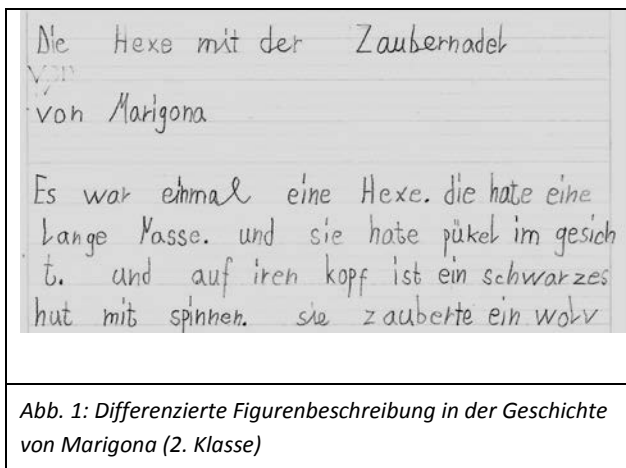 Die Hexe mit der Zaubernadel
von
von Marigona
Es war einmal eine Hexe. die hate eine
Lange Nasse. und sie hate pükel im gesich
t. und auf iren kopf ist ein schwarzes
hut mit spinnen. sie zauberte ein wolv
Abb. 1: Differenzierte Figurenbeschreibung in der Geschichte
von Marigona (2. Klasse)